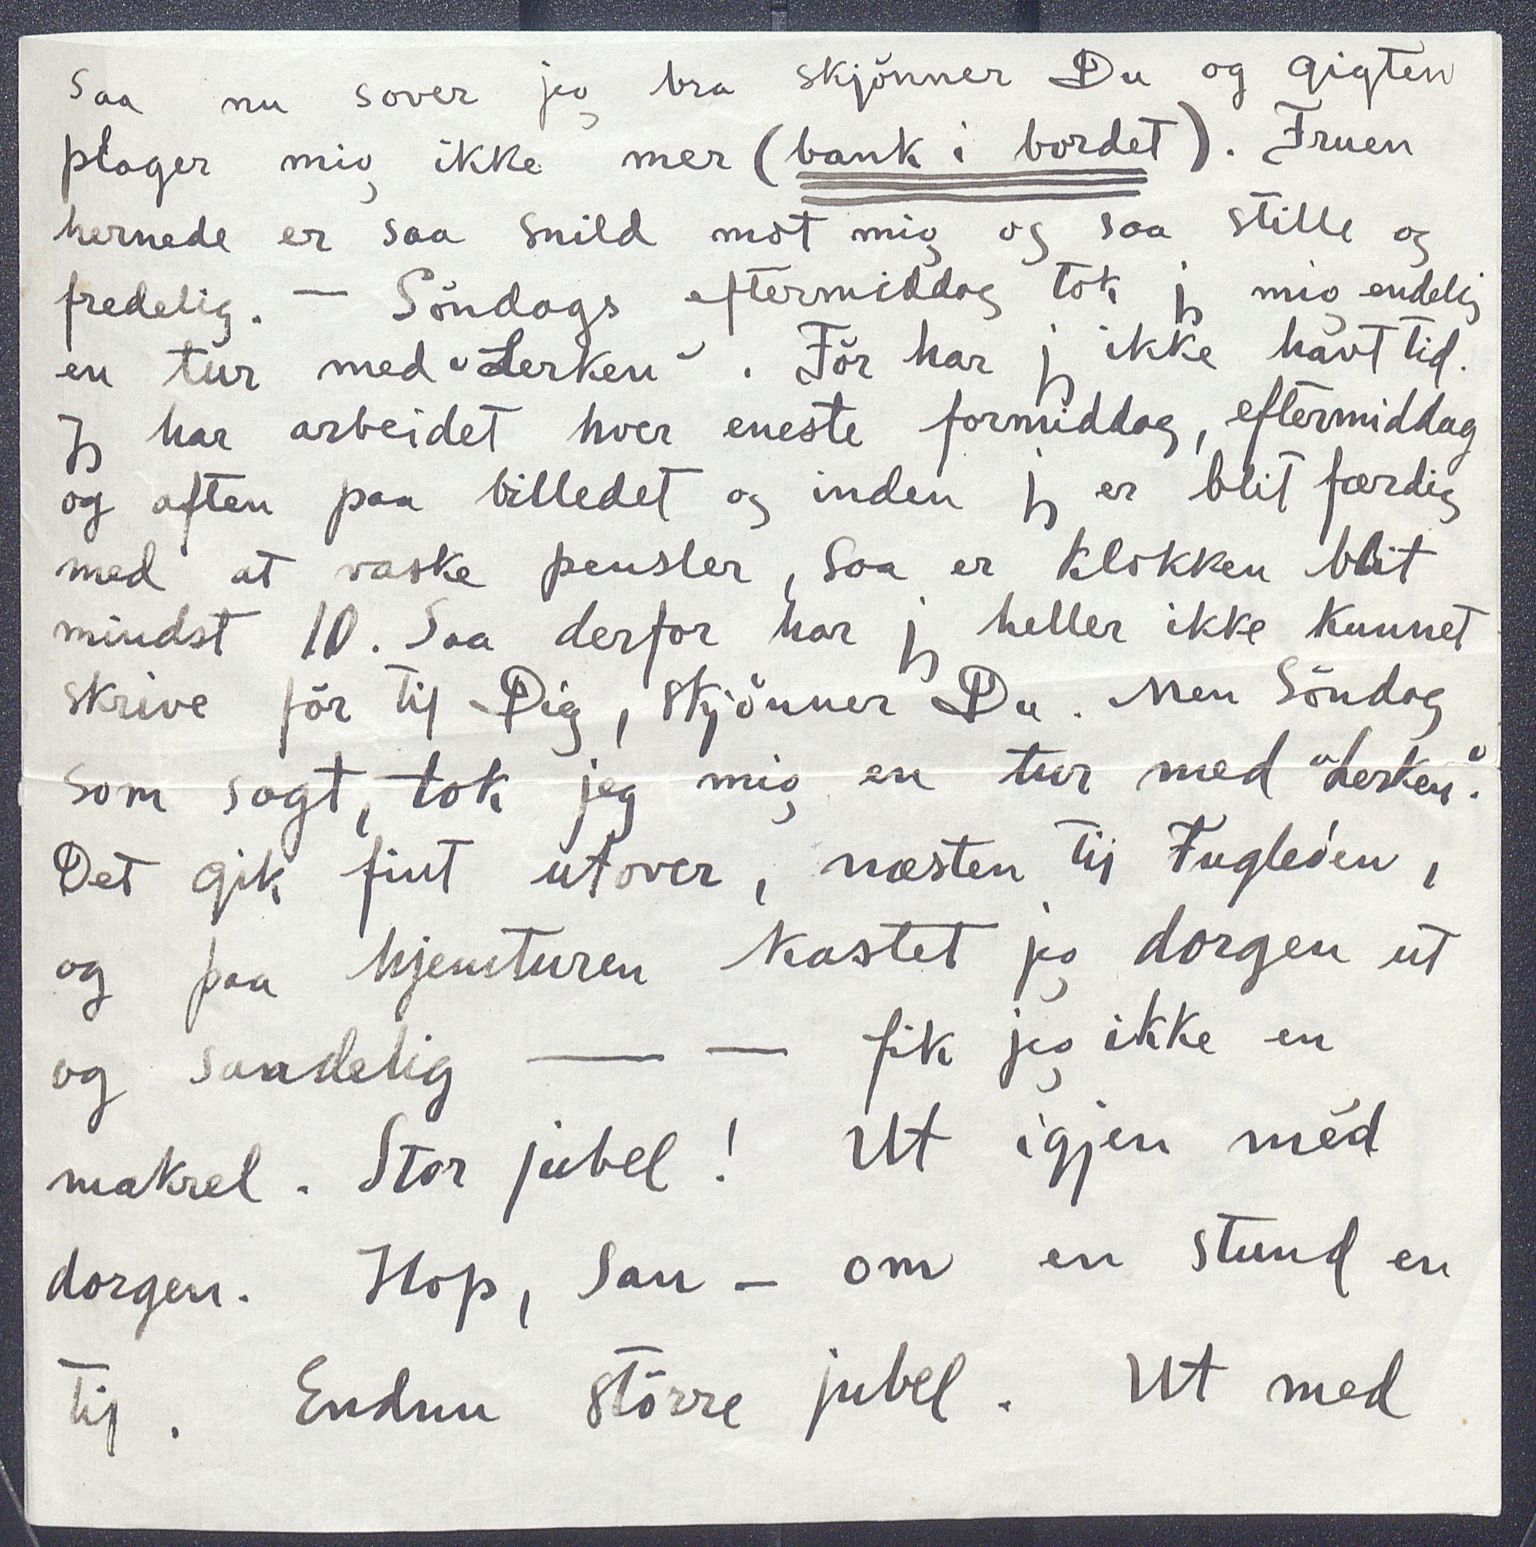 saa nu sover jeg bra skjönner Du og gigten
plager mig ikke mer (bank i bordet). Fruen
hernede er saa snild mot mig og saa stille og
fredelig. — Söndags eftermiddag tok jg mig endelig
en tur med "Lerken". För har jg ikke havt tid.
Jg har arbeidet hver eneste formiddag, eftermiddag
og aften paa billedet og inden jg er blit færdig
med at vaske pensler, saa er klokken blit
mindst 10. Saa derfor har jg heller ikke kunnet
skrive för til Dig, skjönner Du. Men Söndag
som sagt, tok jeg mig en tur med "Lerken".
Det gik fint utover, næsten til Fugleöen,
og paa hjemturen kastet jeg dorgen ut
og sandelig — — fik jeg ikke en
makrel. Stor jubel! Ut igjen med
dorgen. Hop, San — om en stund en
til. Endnu större jubel. Ut med